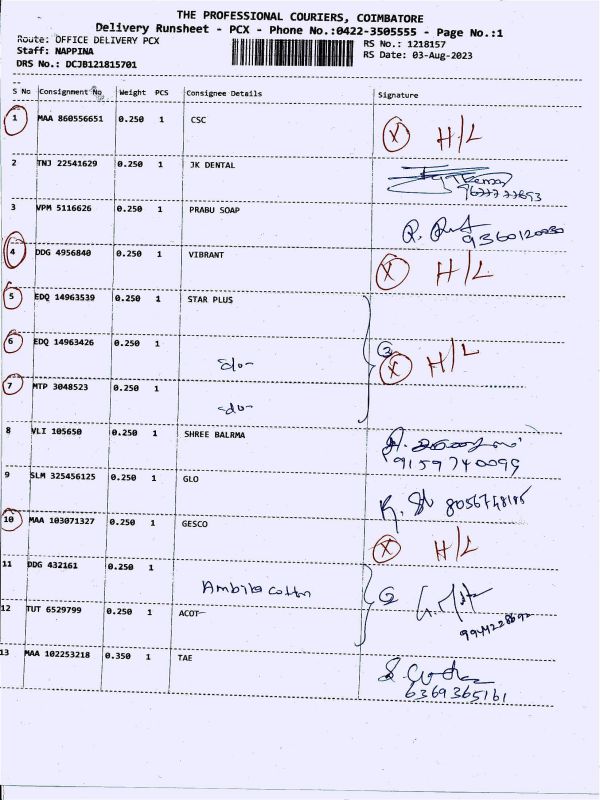 THE PROFESSIONAL COURIERS, COIMBATORE
Delivery Runsheet - PCX - Phone No.:0422-3505555 - Page No.:1
Route: OFFICE DELIVERY PCX RS No.: 1218157
Staff: NAPPINA RS Date: 03-Aug-2023
DRS No.: DCJB121815701
S No Consignment No Weight PCS Consignee Details Signature
1 MAA 860556651 0.250 1 CSC X H/L
2 TNJ 22541629 0.250 1 JK DENTAL
3 VPM 5116626 0.250 1 PRABU SOAP
9360120030
4 DDG 4956840 0.250 1 VIBRANT X H/L
5 EDQ 14963539 0.250 1 STAR PLUS
6 EDQ 14963426 0.250 1 3 X H/L
7 MTP 3048523 0.250 1
8 VLI 105650 0.250 1 SHREE BALRMA
9159740099
9 SLM 325456125 0.250 1 GLO
10 MAA 103071327 0.250 1 GESCO X H/L
11 DDG 432161 0.250 1
Ambika cotton 2
12 TUT 6529799 0.250 1 ACOT
13 MAA 102253218 0.350 1 TAE
6369365161